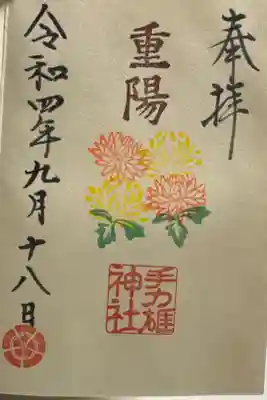 奉拝
重陽
手力雄
神社
令和四年九月十八日